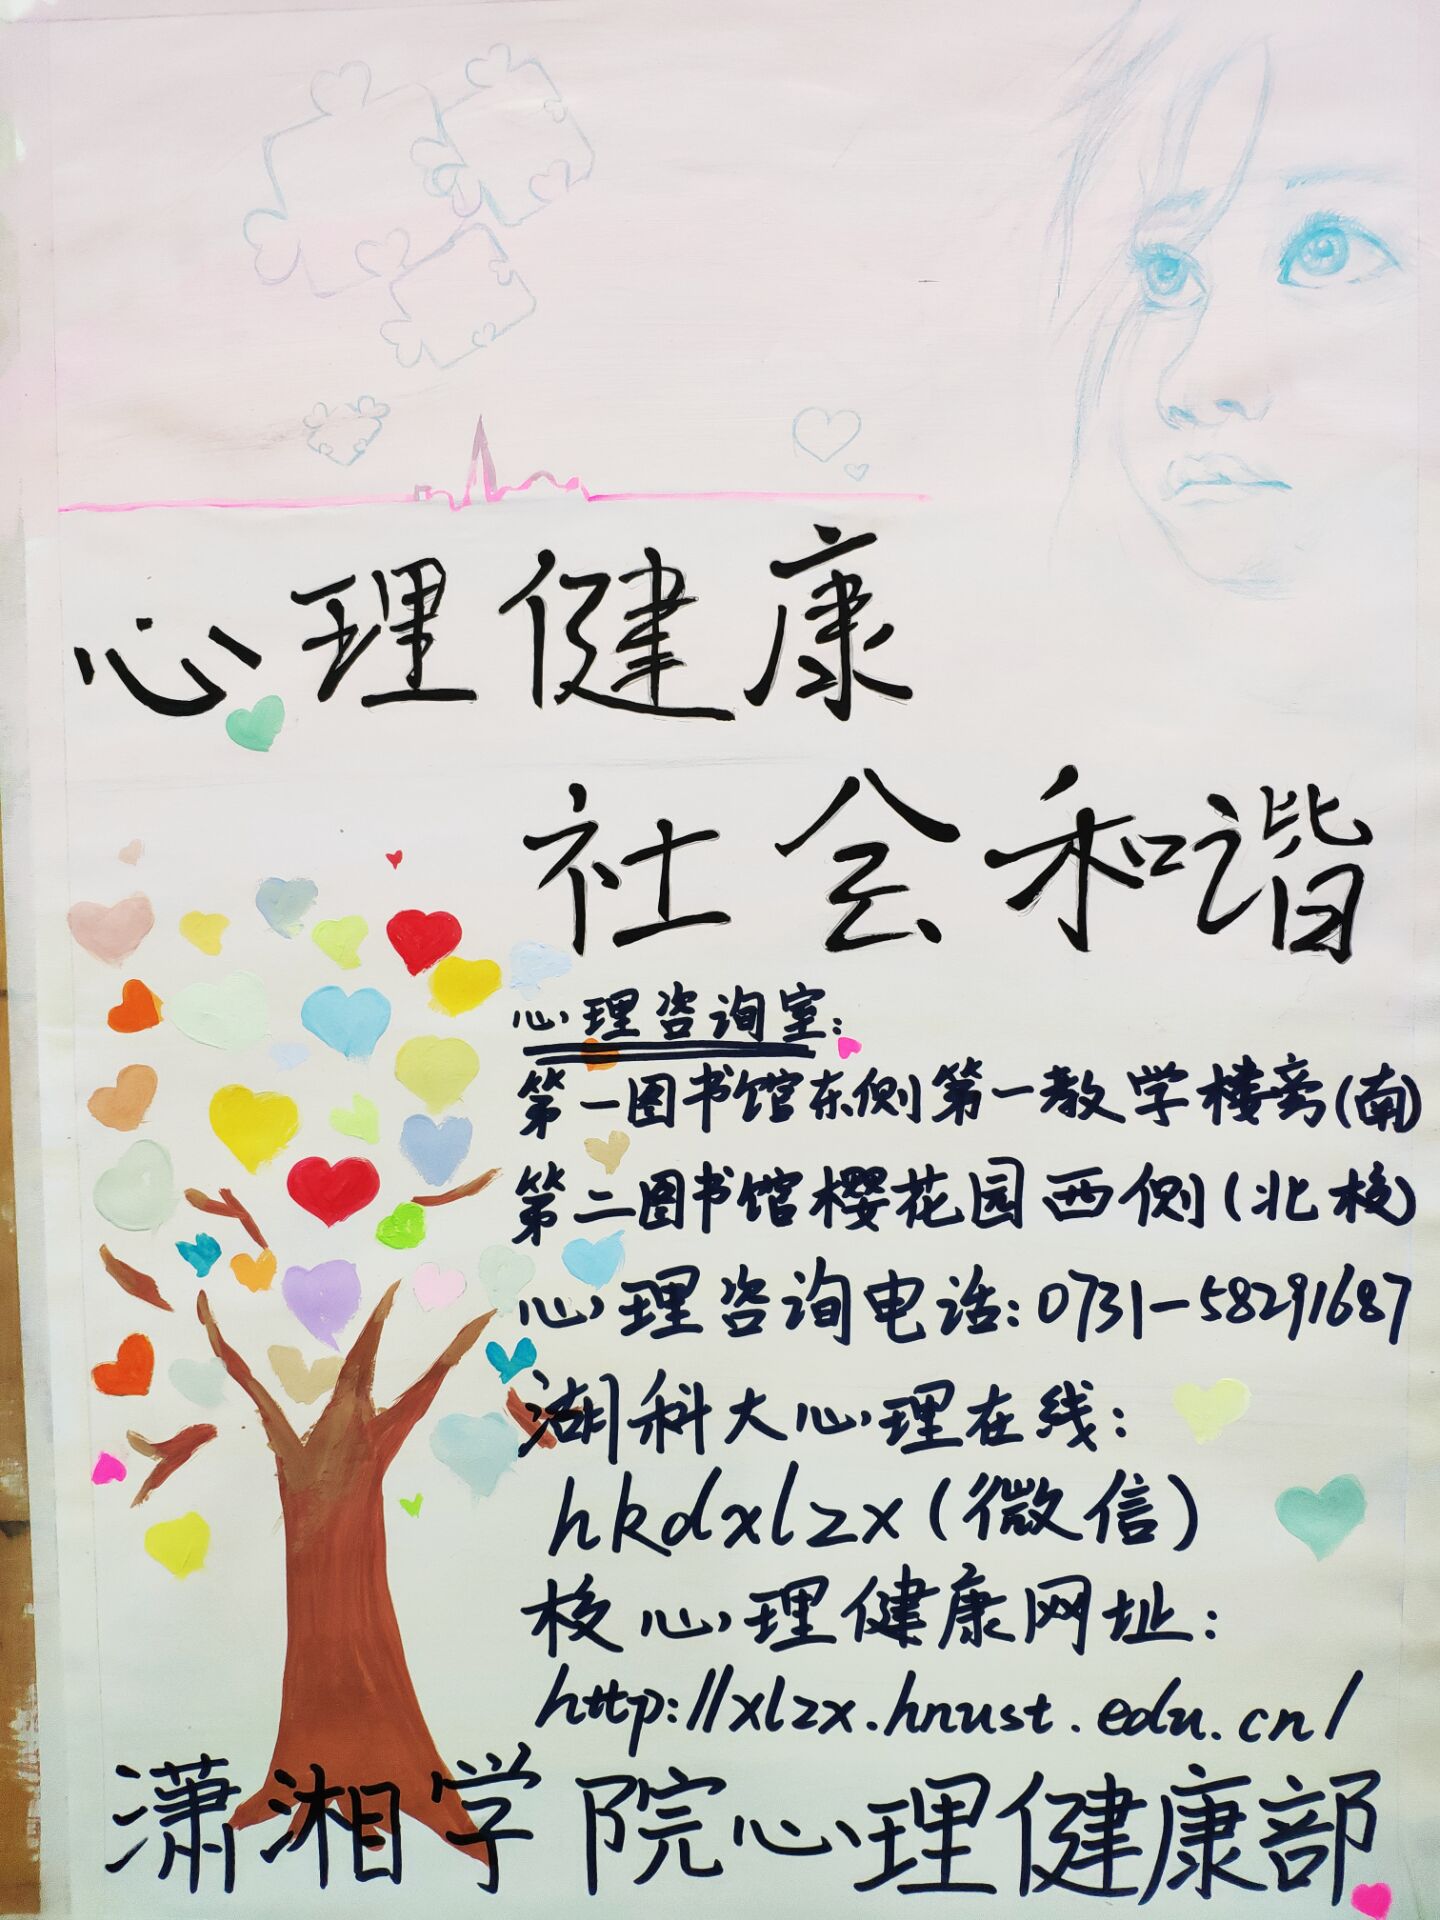 心理健康
社会和谐
心理咨询室:
第一图书馆东侧第一教学楼旁(南)
第二图书馆樱花园西侧(北校)
心理咨询电话:0731-58291687
湖科大心理在线:
hkdxlzx(微信)
校心理健康网址:
http://xlzx.hnust.edu.cn/
潇湘学院心理健康部